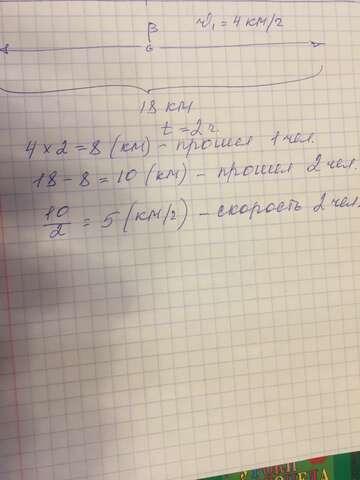 В
v₁ = 4 км/г
18 км
t = 2 г.
4 × 2 = 8 (км) – прошел 1 чел.
18 – 8 = 10 (км) – прошел 2 чел.
10/2 = 5 (км/г) – скорость 2 чел.